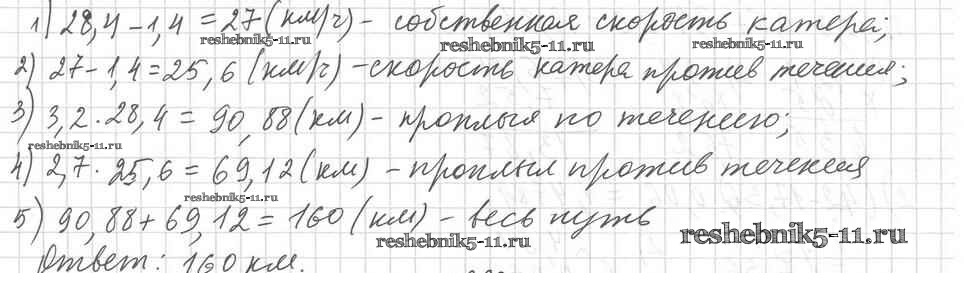 1) 28,4 - 1,4 = 27 (км/ч) - собственная скорость катера;
reshebnik5-11.ru reshebnik5-11.ru reshebnik5-11.ru
2) 27 - 1,4 = 25,6 (км/ч) - скорость катера против течения;
3) 3,2 · 28,4 = 90,88 (км) - проплыл по течению;
reshebnik5-11.ru
4) 2,7 · 25,6 = 69,12 (км) - проплыл против течения
reshebnik5-11.ru
5) 90,88 + 69,12 = 160 (км) - весь путь
reshebnik5-11.ru reshebnik5-11.ru
Ответ: 160 км.